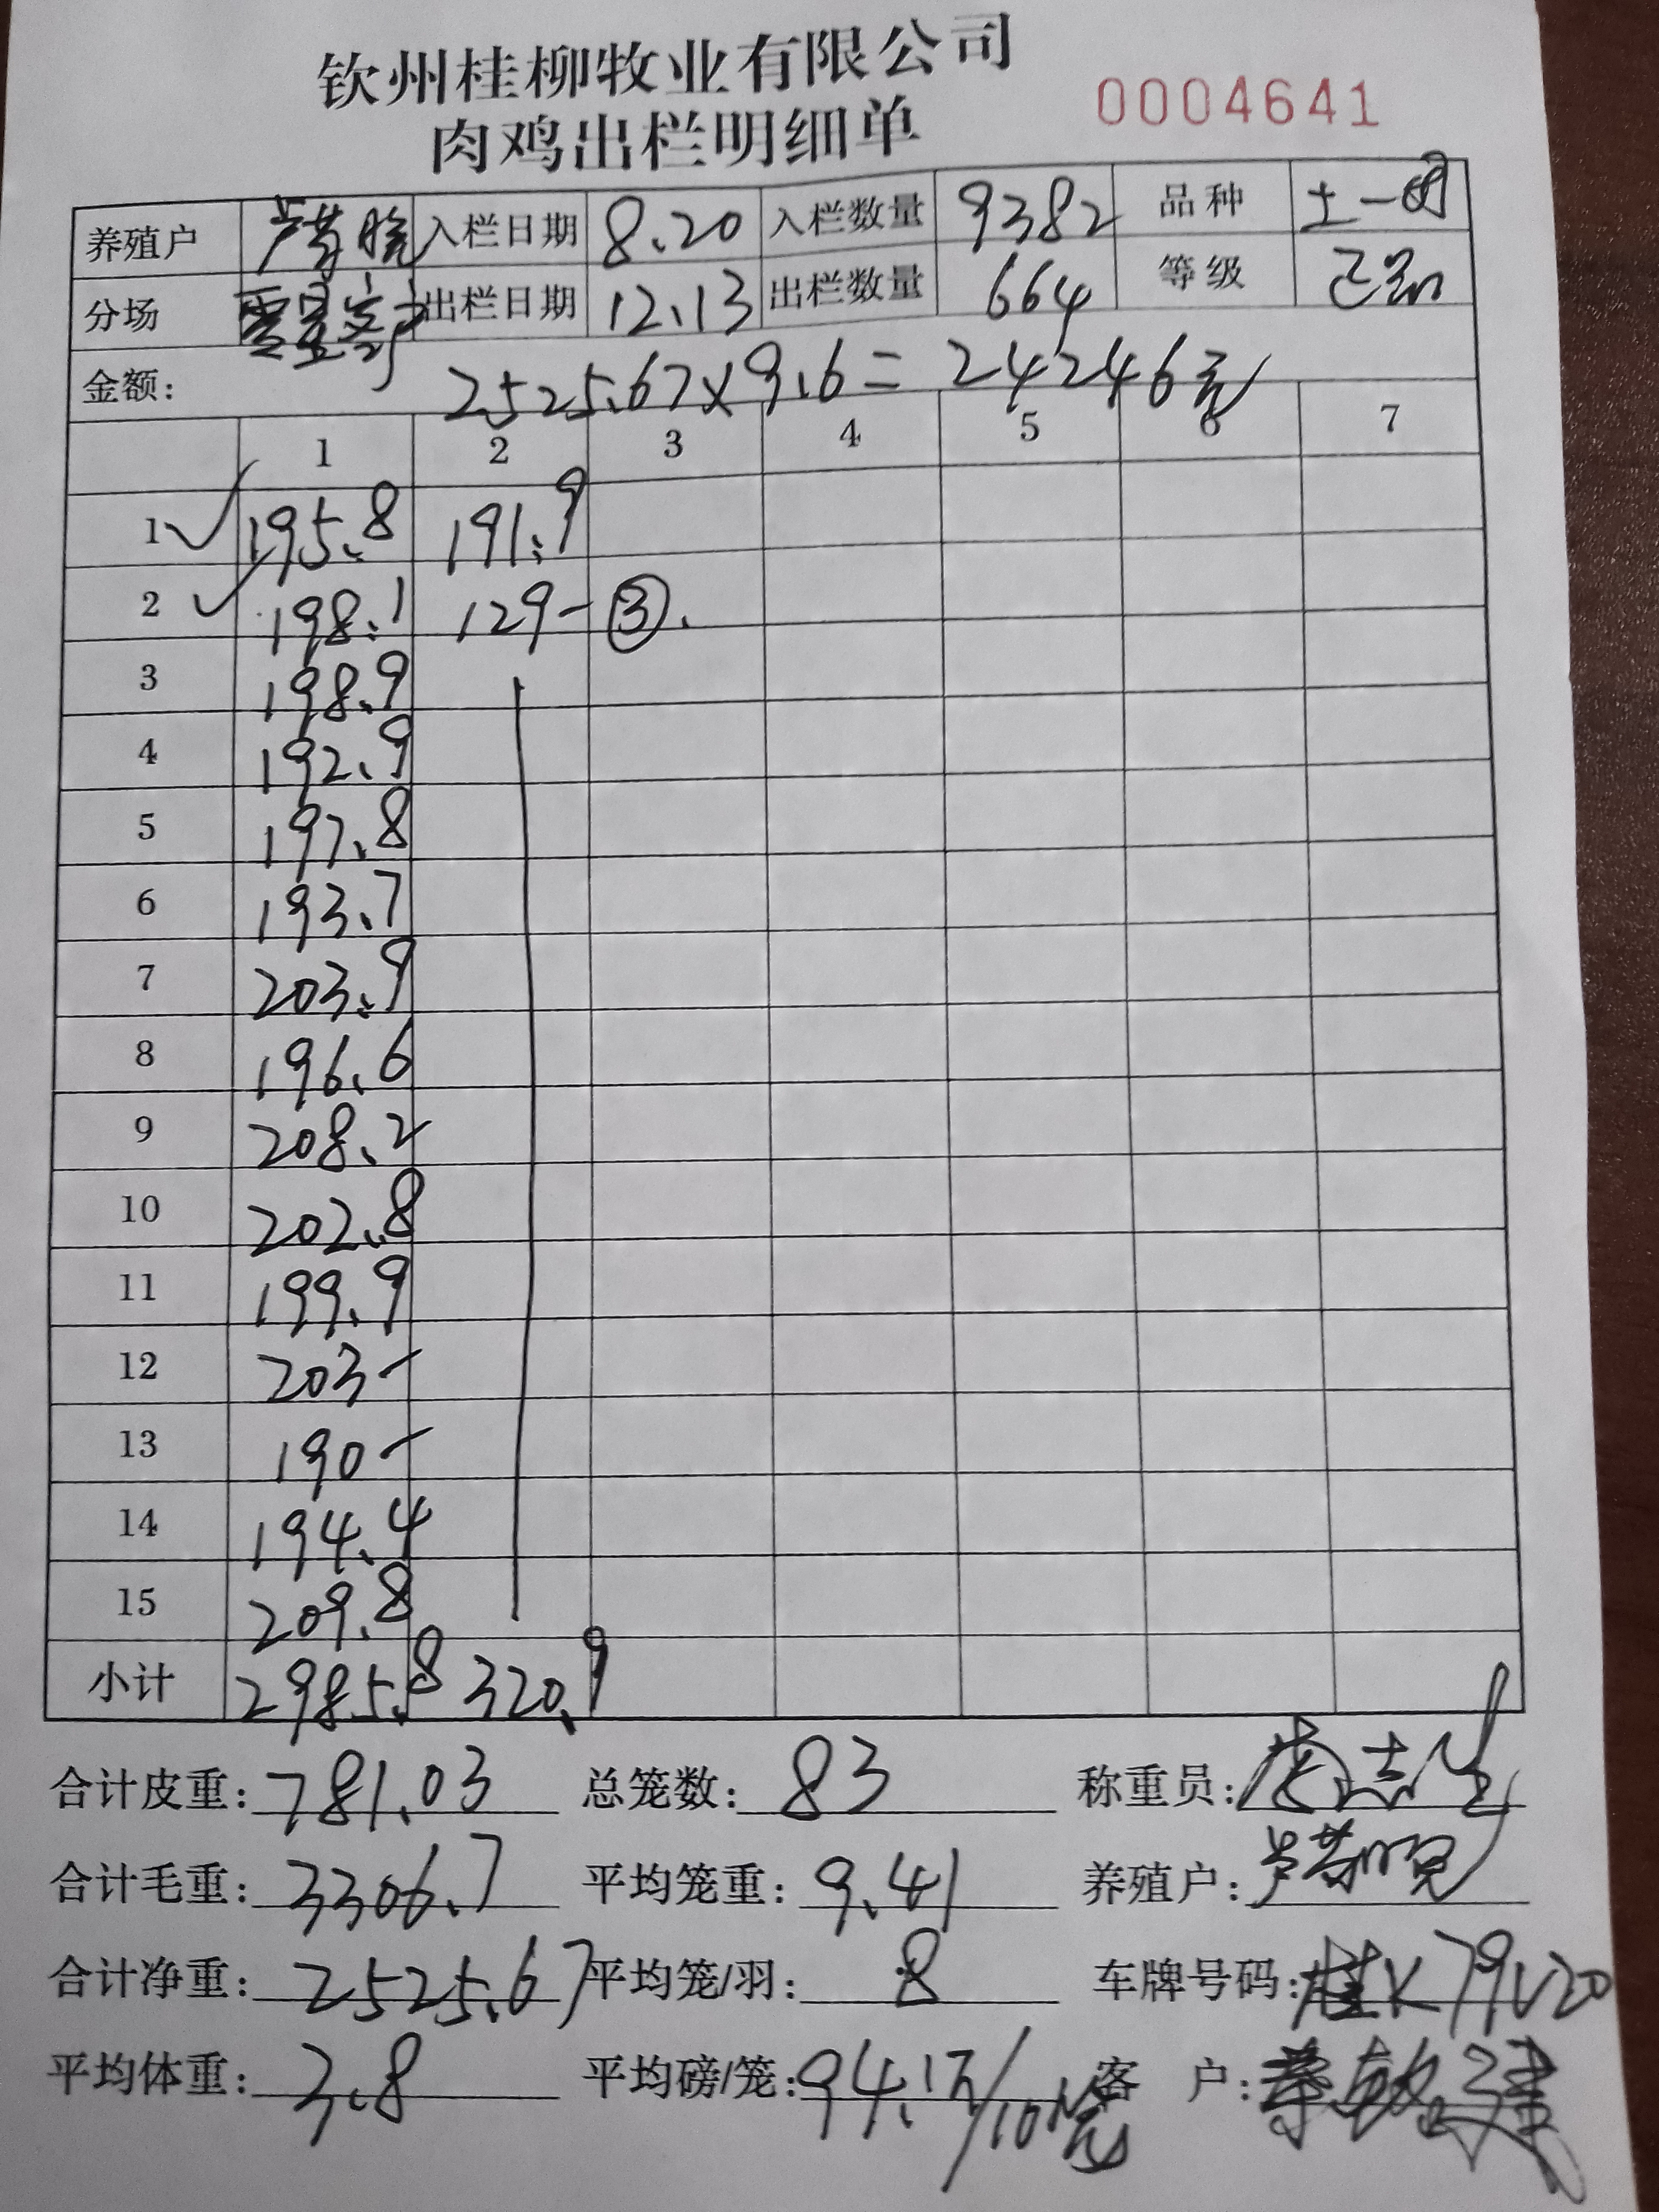 钦州桂柳牧业有限公司
肉鸡出栏明细单 0004641
养殖户 入栏日期 8.20 入栏数量 9382 品种 土一
分场 出栏日期 12.13 出栏数量 664 等级
金额: 2525.67×9.6=24246元
1 2 3 4 5 6 7
1 ✓ 195.8 191.9
2 ✓ 198.1 129- ③.
3 198.9
4 192.9
5 197.8
6 193.7
7 203.9
8 196.6
9 208.2
10 202.8
11 199.9
12 203-
13 190-
14 194.4
15 209.8
小计 2985.8 320.9
合计皮重: 781.03 总笼数: 83 称重员:
合计毛重: 3306.7 平均笼重: 9.41 养殖户:
合计净重: 2525.67 平均笼/羽: 8 车牌号码: 桂K79V20
平均体重: 3.8 平均磅/笼: 94.1斤/10笼 客 户: